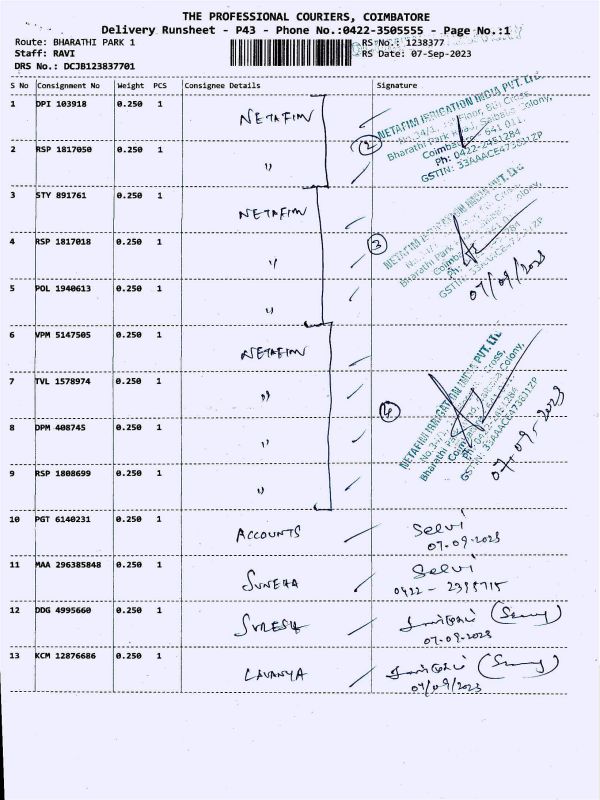 THE PROFESSIONAL COURIERS, COIMBATORE
Delivery Runsheet - P43 - Phone No.:0422-3505555 - Page No.:1
Route: BHARATHI PARK 1 RS No.: 1238377
Staff: RAVI RS Date: 07-Sep-2023
DRS No.: DCJB123837701
S No Consignment No Weight PCS Consignee Details Signature
1 DPI 103918 0.250 1 NETAFIM
2 RSP 1817050 0.250 1 〃 2
NETAFIM IRRIGATION INDIA PVT. LTD
No.34/1, Floor, 8th Cross,
Bharathi Park Road, Saibaba Colony,
Coimbatore 641 011.
Ph: 0422-2451284
GSTIN: 33AAACE4736J1ZP
3 STY 891761 0.250 1 NETAFIM
4 RSP 1817018 0.250 1 〃 3
5 POL 1940613 0.250 1 〃
07/09/2023
6 VPM 5147505 0.250 1 NETAFIM
7 TVL 1578974 0.250 1 〃 4
8 DPM 408745 0.250 1 〃
9 RSP 1808699 0.250 1 〃
NETAFIM IRRIGATION INDIA PVT. LTD
Bharathi Park
GSTIN: 33AAACE4736J1ZP
07-09-2023
10 PGT 6140231 0.250 1 ACCOUNTS Selvi
07-09-2023
11 MAA 296385848 0.250 1 SUNEHA Selvi
0422 - 2395715
12 DDG 4995660 0.250 1 SURESH
07-09-2023
13 KCM 12876686 0.250 1 LAVANYA
07/09/2023